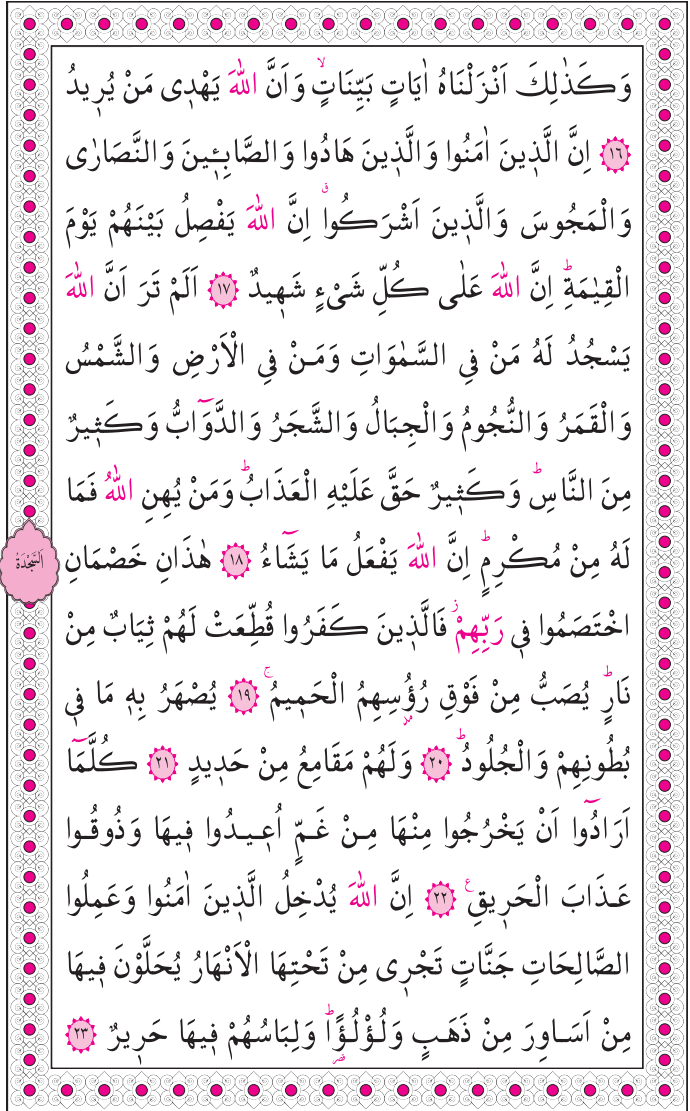 وَكَذٰلِكَ اَنْزَلْنَاهُ اٰيَاتٍ بَيِّنَاتٍۙ وَاَنَّ اللّٰهَ يَهْدٖى مَنْ يُرٖيدُ
﴿١٦﴾ اِنَّ الَّذٖينَ اٰمَنُوا وَالَّذٖينَ هَادُوا وَالصَّابِـٖٔينَ وَالنَّصَارٰى
وَالْمَجُوسَ وَالَّذٖينَ اَشْرَكُواۗ اِنَّ اللّٰهَ يَفْصِلُ بَيْنَهُمْ يَوْمَ
الْقِيٰمَةِؕ اِنَّ اللّٰهَ عَلٰى كُلِّ شَیْءٍ شَهٖيدٌ ﴿١٧﴾ اَلَمْ تَرَ اَنَّ اللّٰهَ
يَسْجُدُ لَهُ مَنْ فِى السَّمٰوَاتِ وَمَنْ فِى الْاَرْضِ وَالشَّمْسُ
وَالْقَمَرُ وَالنُّجُومُ وَالْجِبَالُ وَالشَّجَرُ وَالدَّوَٓابُّ وَكَثٖيرٌ
مِنَ النَّاسِؕ وَكَثٖيرٌ حَقَّ عَلَيْهِ الْعَذَابُؕ وَمَنْ يُهِنِ اللّٰهُ فَمَا
لَهُ مِنْ مُكْرِمٍؕ اِنَّ اللّٰهَ يَفْعَلُ مَا يَشَٓاءُ ﴿١٨﴾ هٰذَانِ خَصْمَانِ
اَلسَّجْدَةُ
اخْتَصَمُوا فٖى رَبِّهِمْؗ فَالَّذٖينَ كَفَرُوا قُطِّعَتْ لَهُمْ ثِيَابٌ مِنْ
نَارٍؕ يُصَبُّ مِنْ فَوْقِ رُؤُسِهِمُ الْحَمٖيمُۚ ﴿١٩﴾ يُصْهَرُ بِهٖ مَا فٖى
بُطُونِهِمْ وَالْجُلُودُؕ ﴿٢٠﴾ وَلَهُمْ مَقَامِعُ مِنْ حَدٖيدٍ ﴿٢١﴾ كُلَّمَٓا
اَرَادُٓوا اَنْ يَخْرُجُوا مِنْهَا مِنْ غَمٍّ اُعٖيدُوا فٖيهَا وَذُوقُوا
عَذَابَ الْحَرٖيقِࣖ ﴿٢٢﴾ اِنَّ اللّٰهَ يُدْخِلُ الَّذٖينَ اٰمَنُوا وَعَمِلُوا
الصَّالِحَاتِ جَنَّاتٍ تَجْرٖى مِنْ تَحْتِهَا الْاَنْهَارُ يُحَلَّوْنَ فٖيهَا
مِنْ اَسَاوِرَ مِنْ ذَهَبٍ وَلُؤْلُؤًاؕ وَلِبَاسُهُمْ فٖيهَا حَرٖيرٌ ﴿٢٣﴾